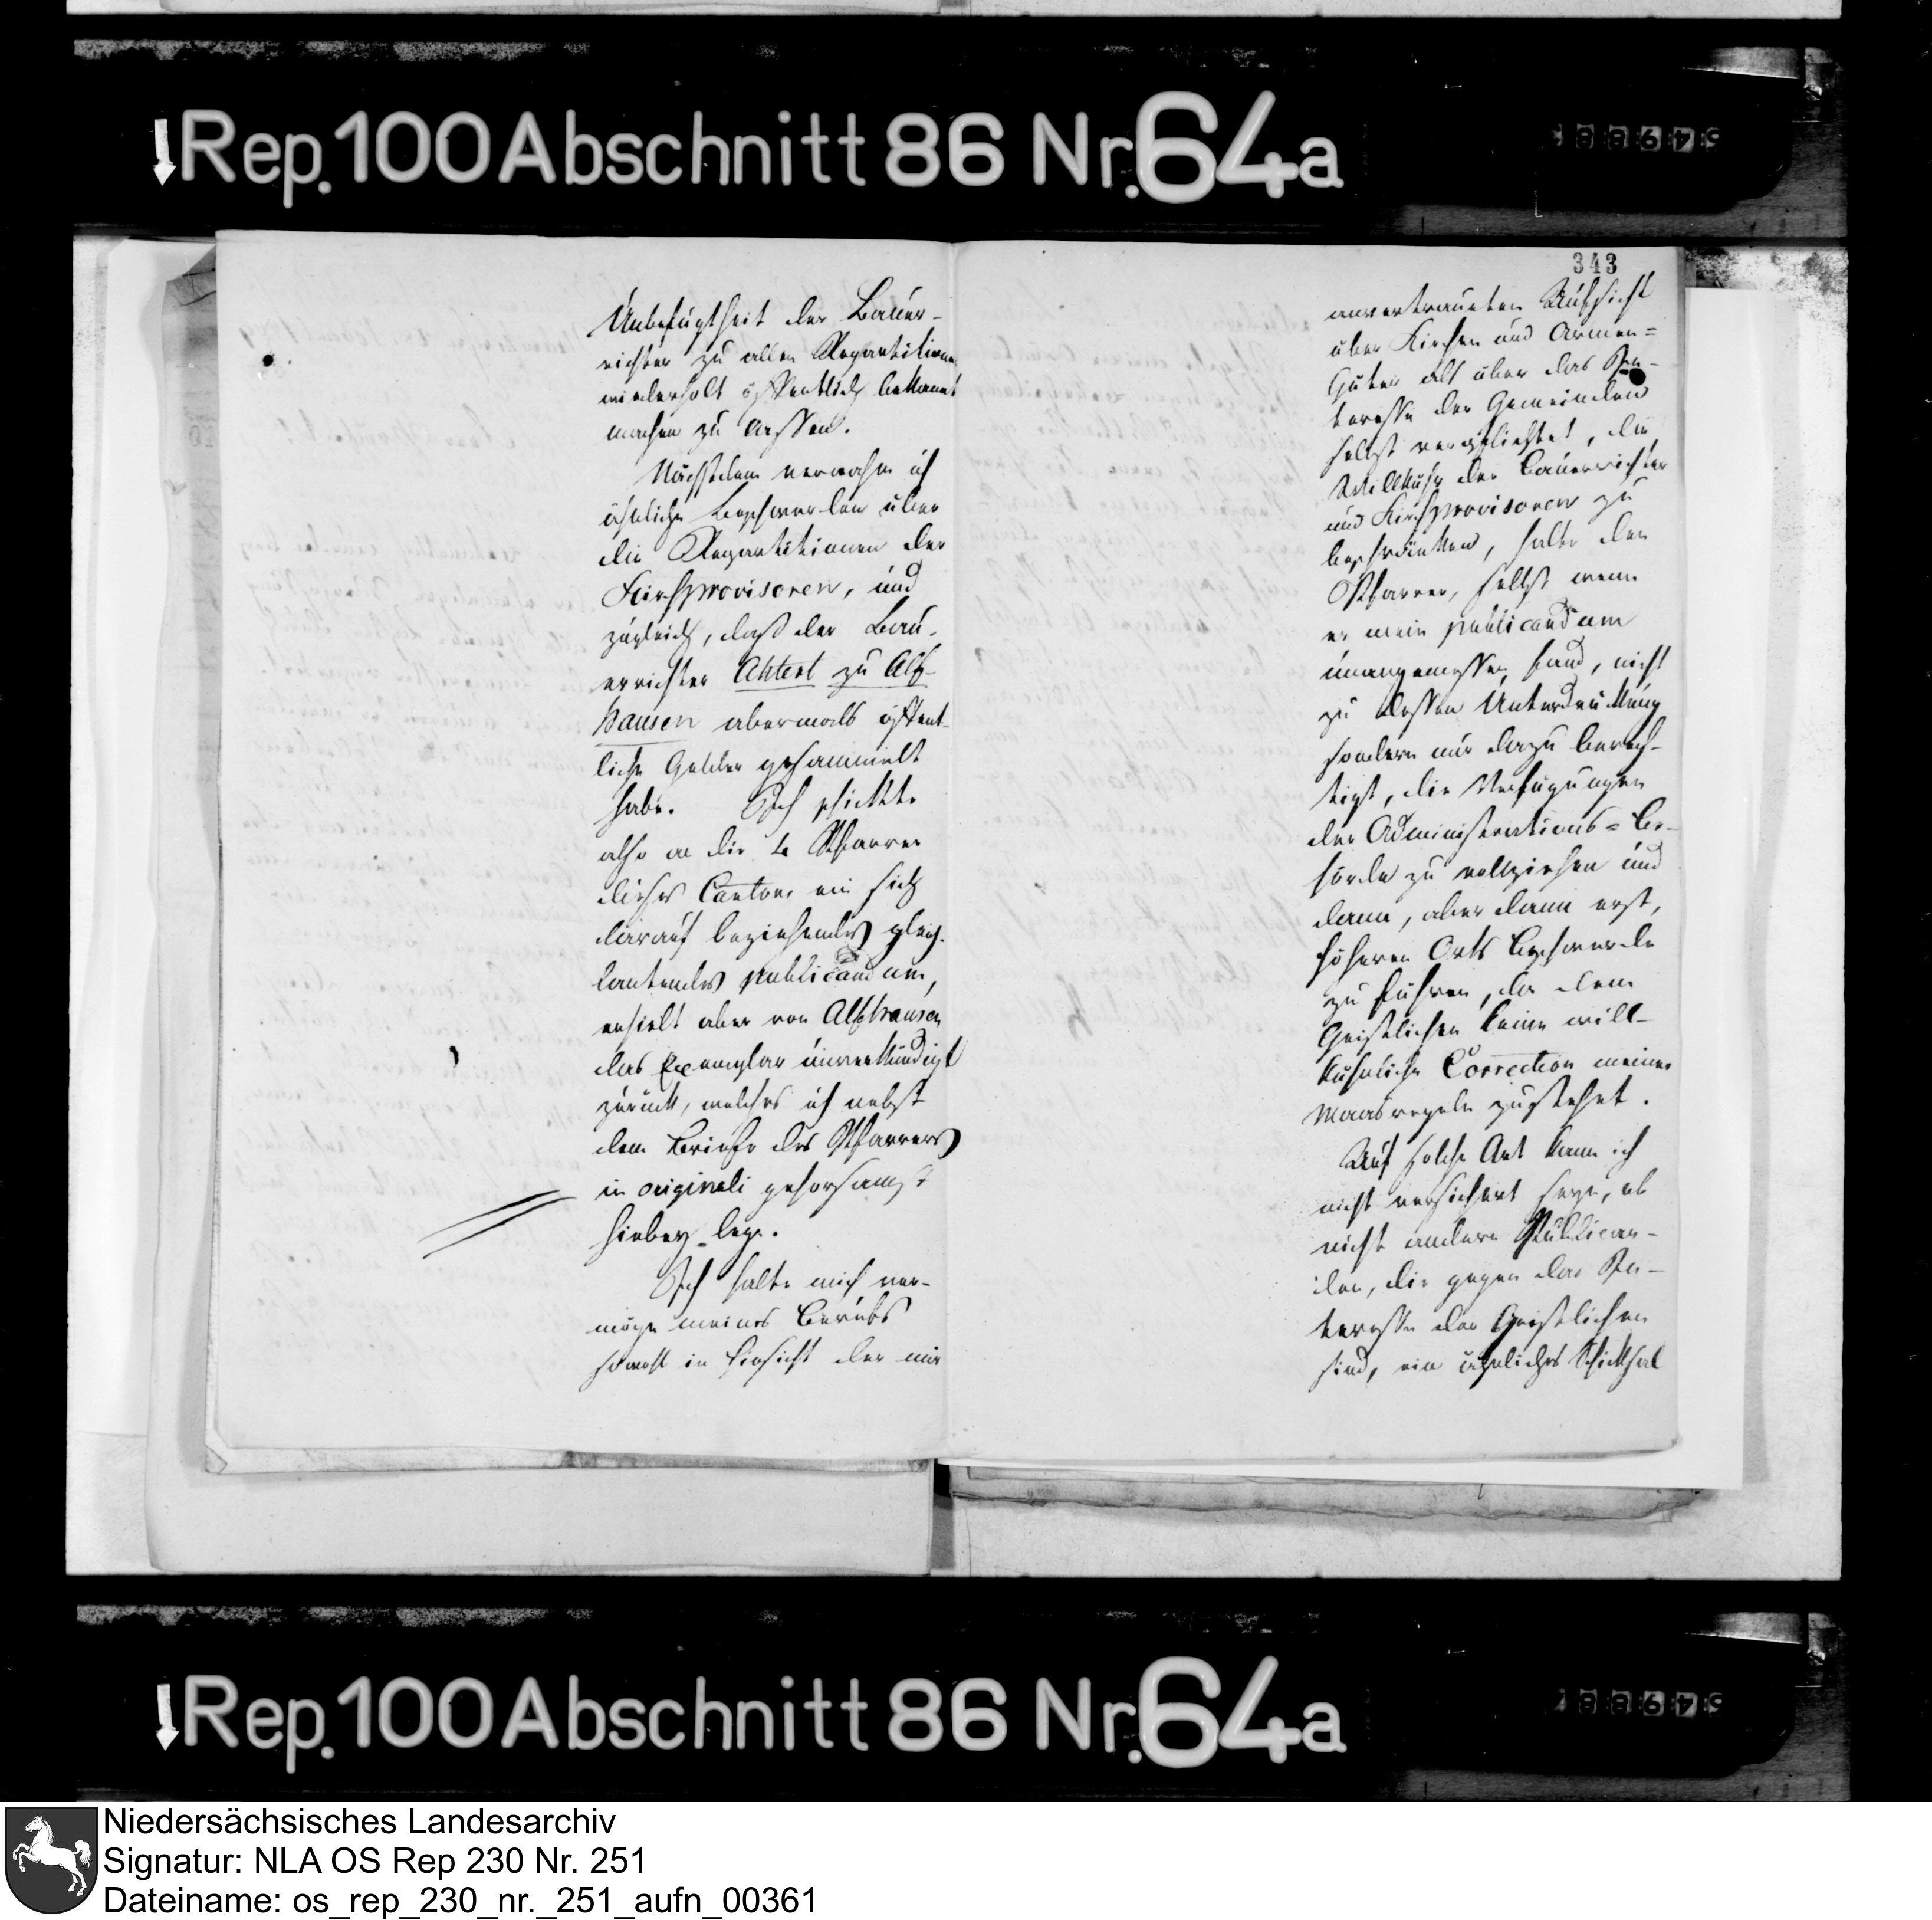 Rep. 100 Abschnitt 86 Nr. 64a
Unbefugtheit der Bauer-
richter zu allen Repartitionen
wiederholt öffentlich bekannt
machen zu lassen.
Nachdem vernahm ich
ähnliche Beschwerden über
die Repartitionen der
Kirchprovisoren, und
zugleich, daß der Bau-
errichter Aktert zu Alf-
hausen abermals öffent-
liche Gelder gesammelt
habe. Ich schickte
also an die 4 Pfarrer
dieses Cantons ein sich
darauf beziehendes gleich-
lautendes publicandum,
erhielt aber von Alfhausen
das Exemplar unverkündigt
zurück, welches ich nebst
dem Briefe des Pfarrers
in originali gehorsamst
hiebey lege.
Ich halte mich ver-
möge meines Berufs
sowohl in Hinsicht der mir
343
anvertraueten Aufsicht
über Kirchen und Armen=
Güter als über das In-
teresse der Gemeinden
selbst verpflichtet, die
Willkühr der Bauerrichter
und Kirchprovisoren zu
beschränken, halte den
Pfarrer, selbst wenn
er mein publicandum
unangemessen fand, nicht
zu dessen Unterdrückung
sondern nur dazu berech-
tigt, die Verfügungen
der Administrations=Be-
hörde zu vollziehen und
dann, aber dann erst,
höheren Orts Beschwerde
zu führen, da dem
Geistlichen keine will-
kührliche Correction meiner
Maasregeln zustehet.
Auf solche Art kann ich
nicht versichert seyn, ob
nicht andere Publican-
den, die gegen das In-
teresse der Geistlichen
sind, ein ähnliches Schicksal
Rep. 100 Abschnitt 86 Nr. 64a
Niedersächsisches Landesarchiv
Signatur: NLA OS Rep 230 Nr. 251
Dateiname: os_rep_230_nr._251_aufn_00361